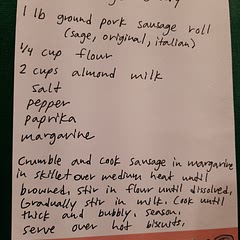 1 lb ground pork sausage roll
(sage, original, italian)
1/4 cup flour
2 cups almond milk
salt
pepper
paprika
margarine
Crumble and cook sausage in margarine
in skillet over medium heat until
browned, stir in flour until dissolved.
Gradually stir in milk. Cook until
thick and bubbly. season.
serve over hot biscuits.